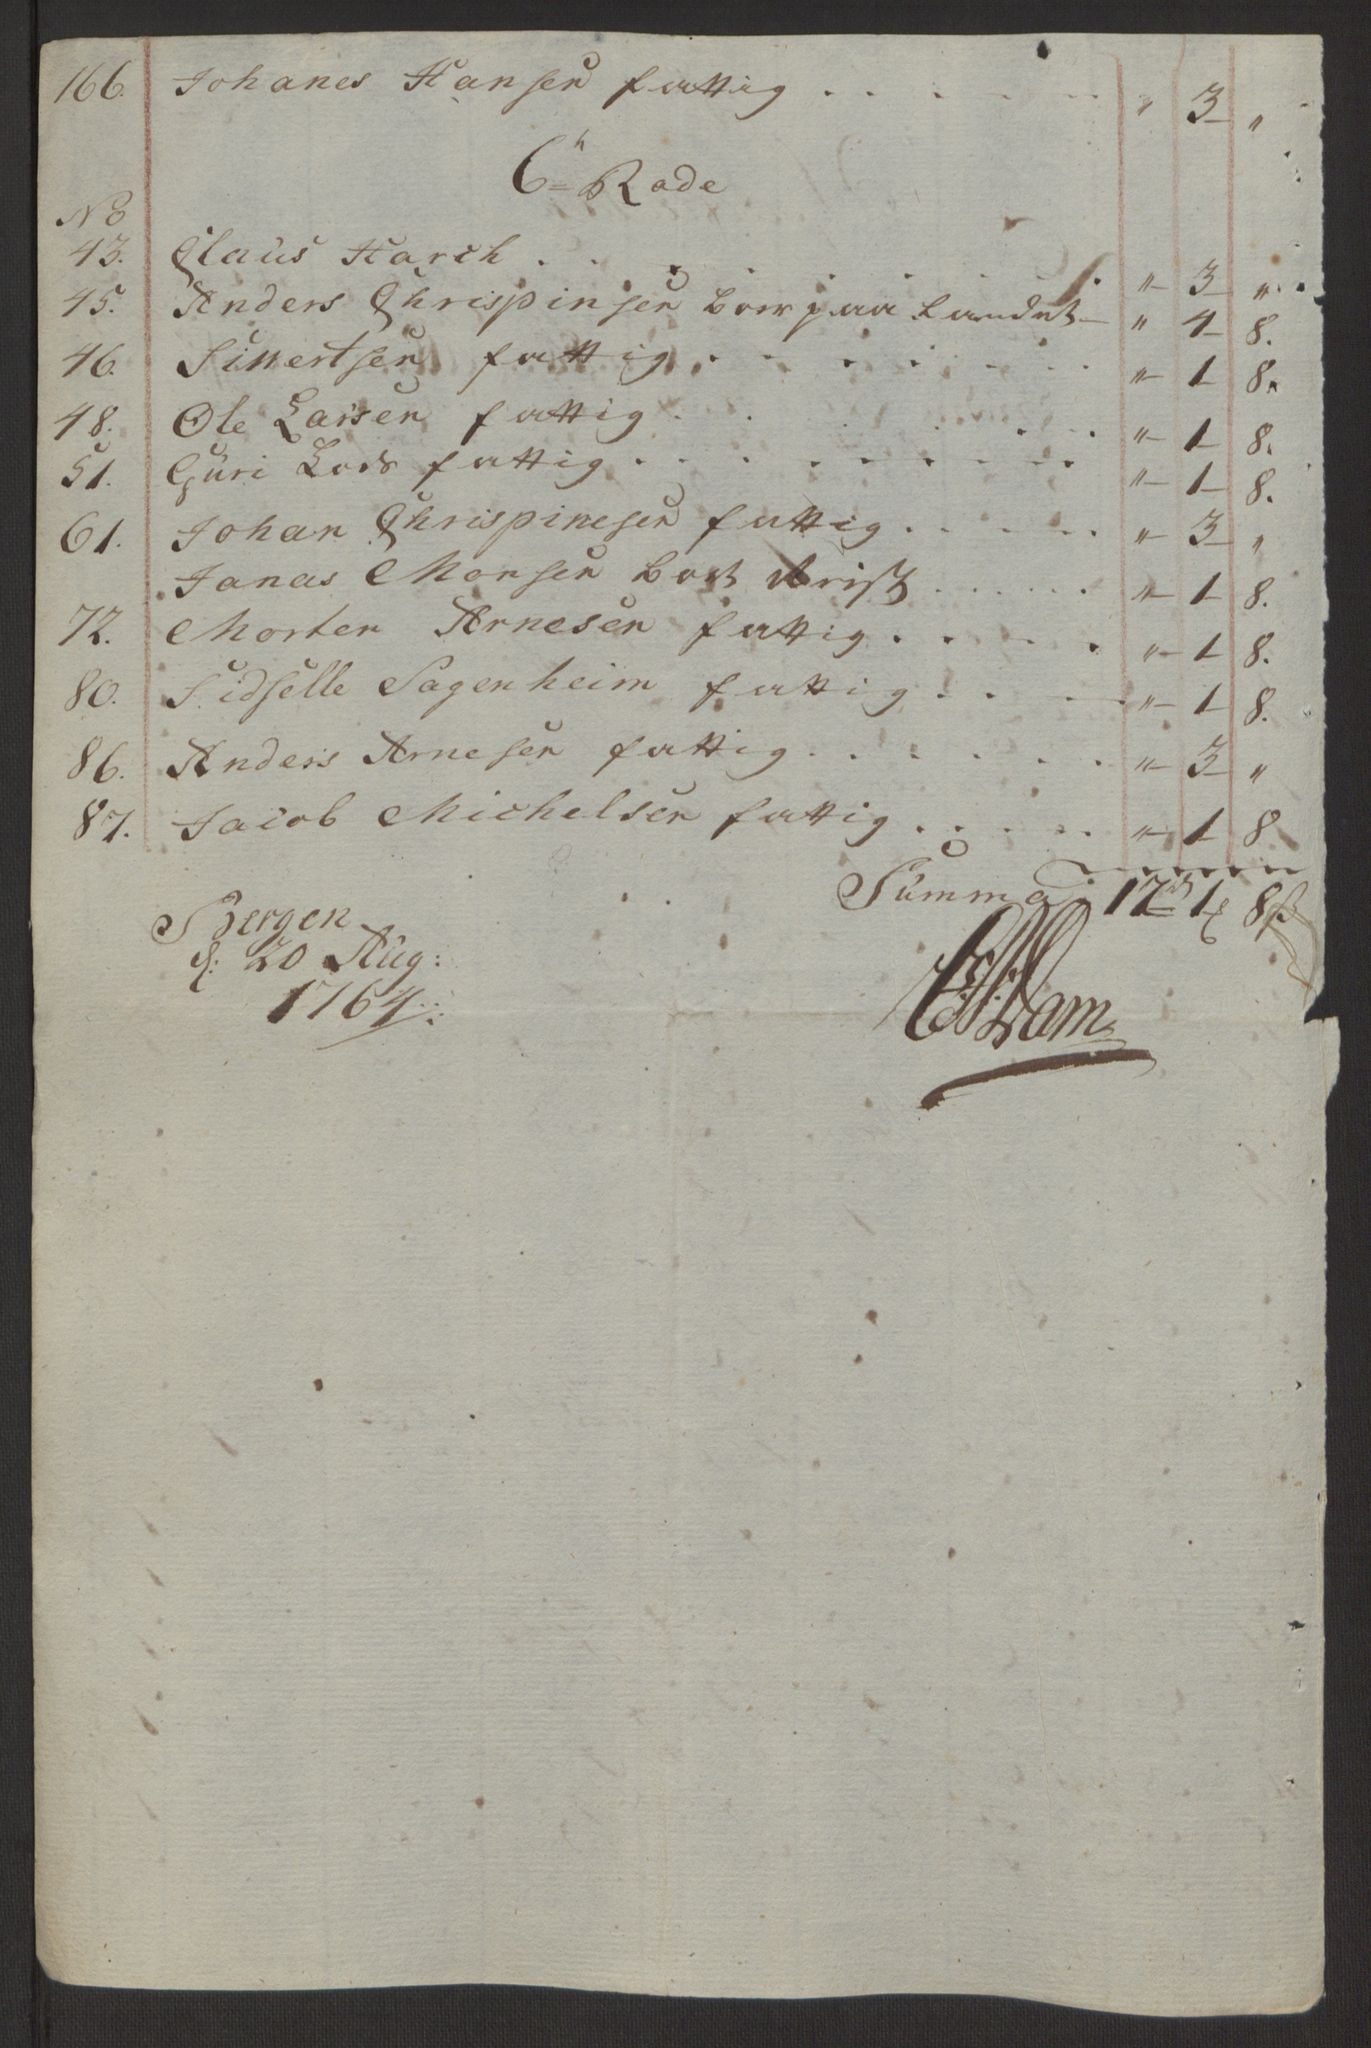 166. Johanes Hansen fattig . . . . . . " 3 "
6te Rode
No
43. Claus Harck . . . . . . . . . " 3 "
45. Anders Chrispinsen boer paa Landet " 4 8.
46. Siwertsen fattig . . . . . . . " 1 8.
48. Ole Larsen fattig . . . . . . " 1 8.
51. Guri Lods fattig . . . . . . . . . " 1 8.
61. Johan Chrispinesen fattig . . . . . " 3 "
Janas Monsen bort reist . . . . . . " 1 8.
72. Morten Arnesen fattig . . . . . " 1 8.
80. Sidselle Sagenheim fattig . . . " 1 8.
86. Anders Arnesen fattig . . . . . . " 3 "
87. Jacob Michelsen fattig . . . . . " 1 8
Summa 17 rd 1 8 ß
Bergen
d: 20 Aug:
1764